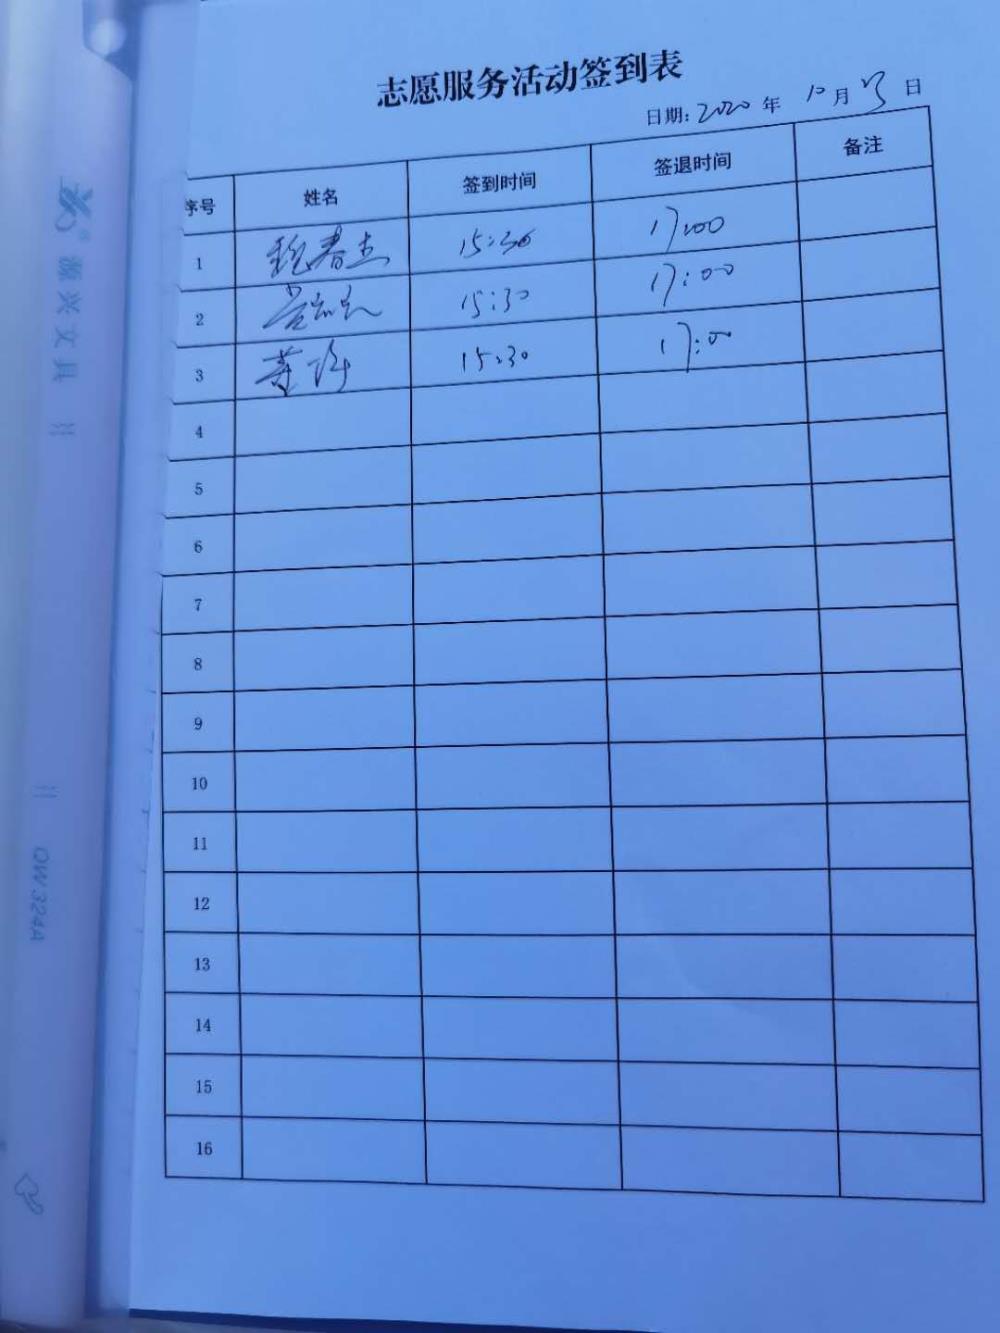 志愿服务活动签到表
日期: 2020 年 10 月 日
序号 姓名 签到时间 签退时间 备注
1 魏春杰 15:30 17:00
2 15:30 17:00
3 董 15:30 17:00
4
5
6
7
8
9
10
11
12
13
14
15
16
振兴文具
QW324A